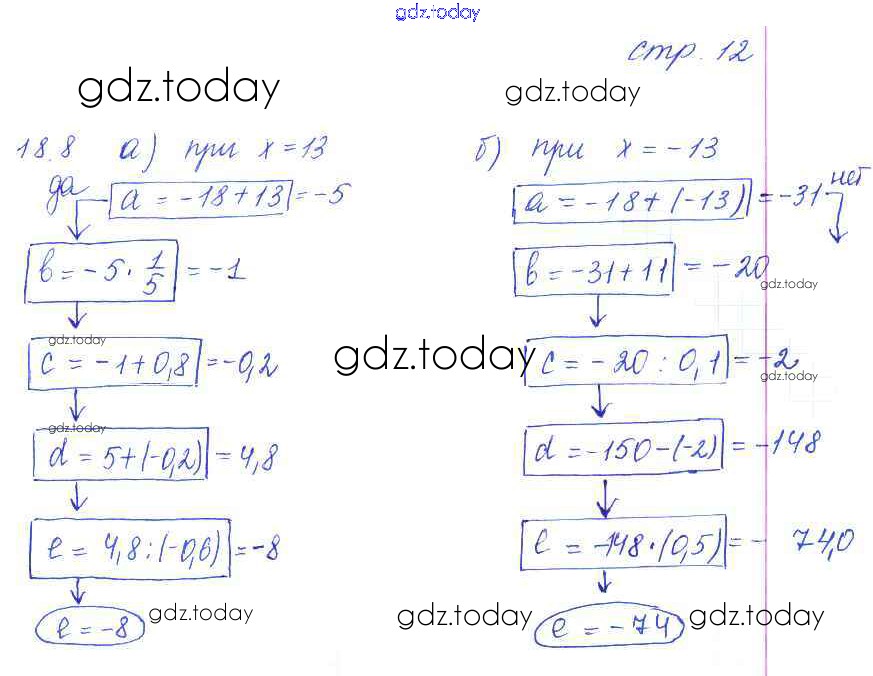 gdz.today
стр. 12
gdz.today
gdz.today
18.8 а) при x = 13
да a = -18 + 13 = -5
b = -5 · 1/5 = -1
gdz.today
c = -1 + 0,8 = -0,2
gdz.today
d = 5 + (-0,2) = 4,8
e = 4,8 : (-0,6) = -8
e = -8
gdz.today
gdz.today
б) при x = -13
a = -18 + (-13) = -31 нет
b = -31 + 11 = -20
gdz.today
c = -20 : 0,1 = -2
gdz.today
d = -150 - (-2) = -148
e = -148 · (0,5) = - 74,0
e = -74
gdz.today
gdz.today